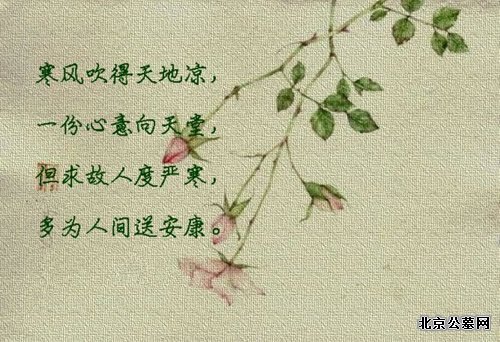 寒风吹得天地凉，
一份心意向天堂，
但求故人度严寒，
多为人间送安康。
北京公墓网